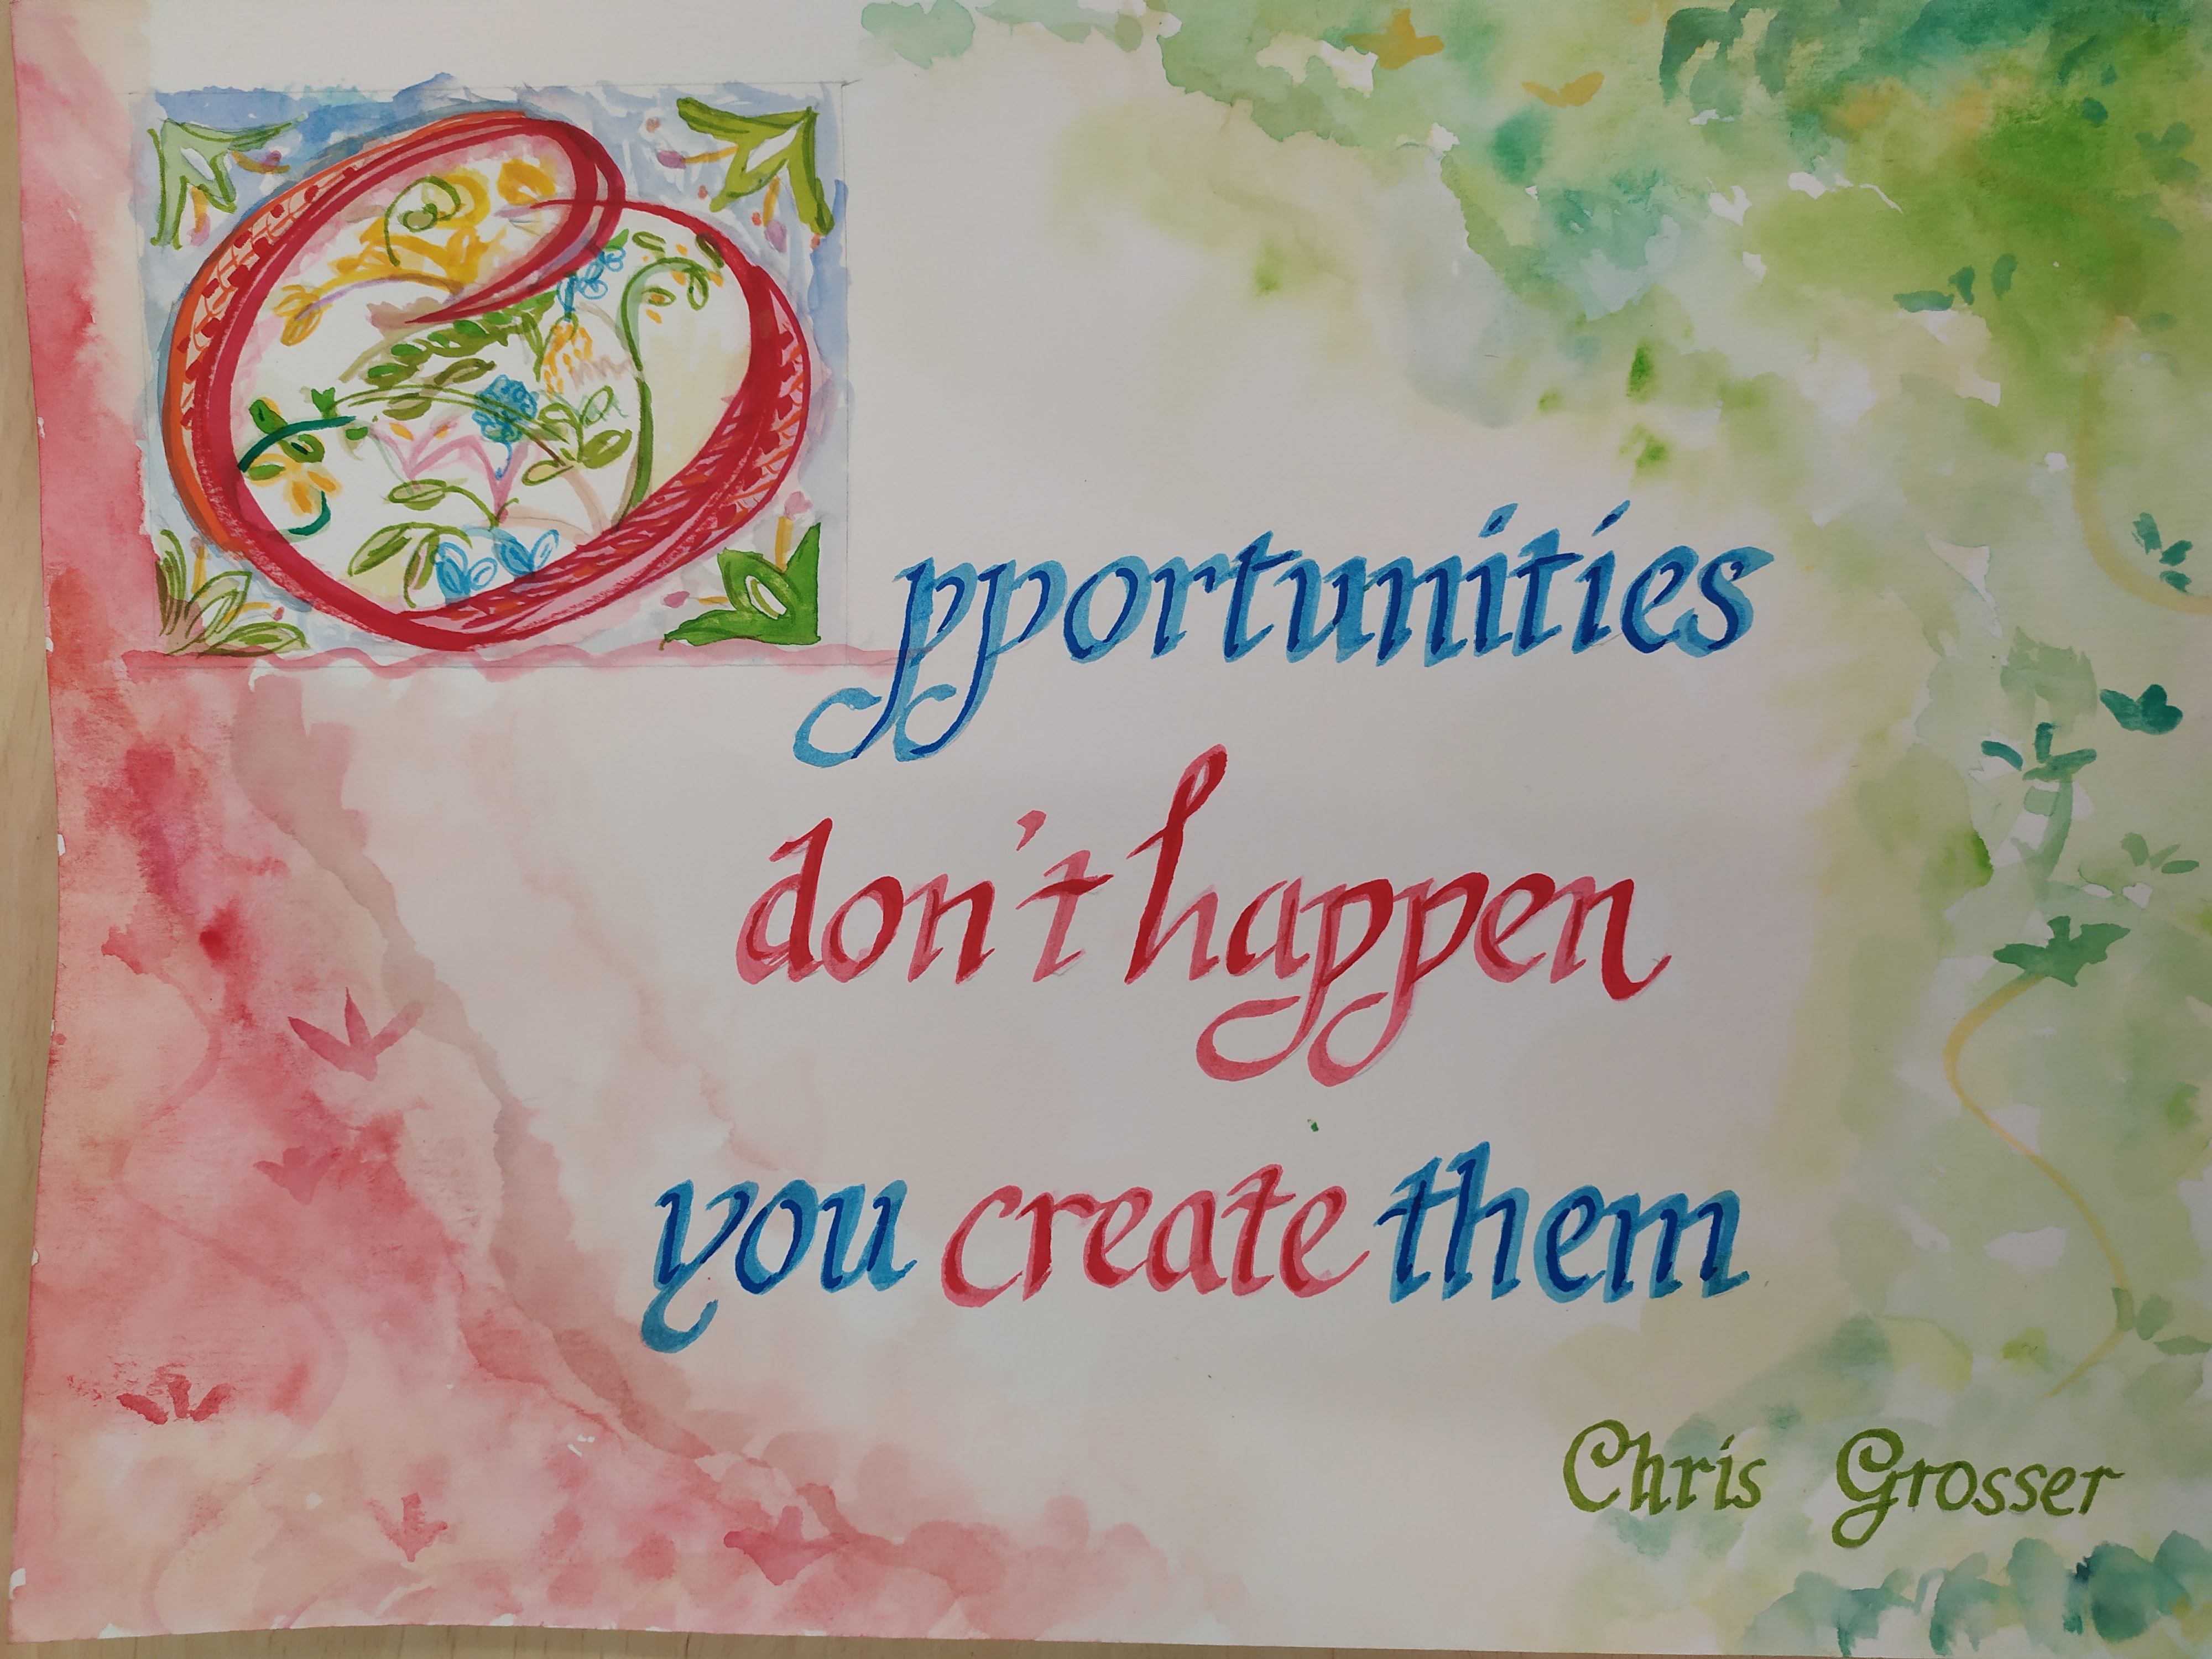 Opportunities
don't happen
you create them
Chris Grosser